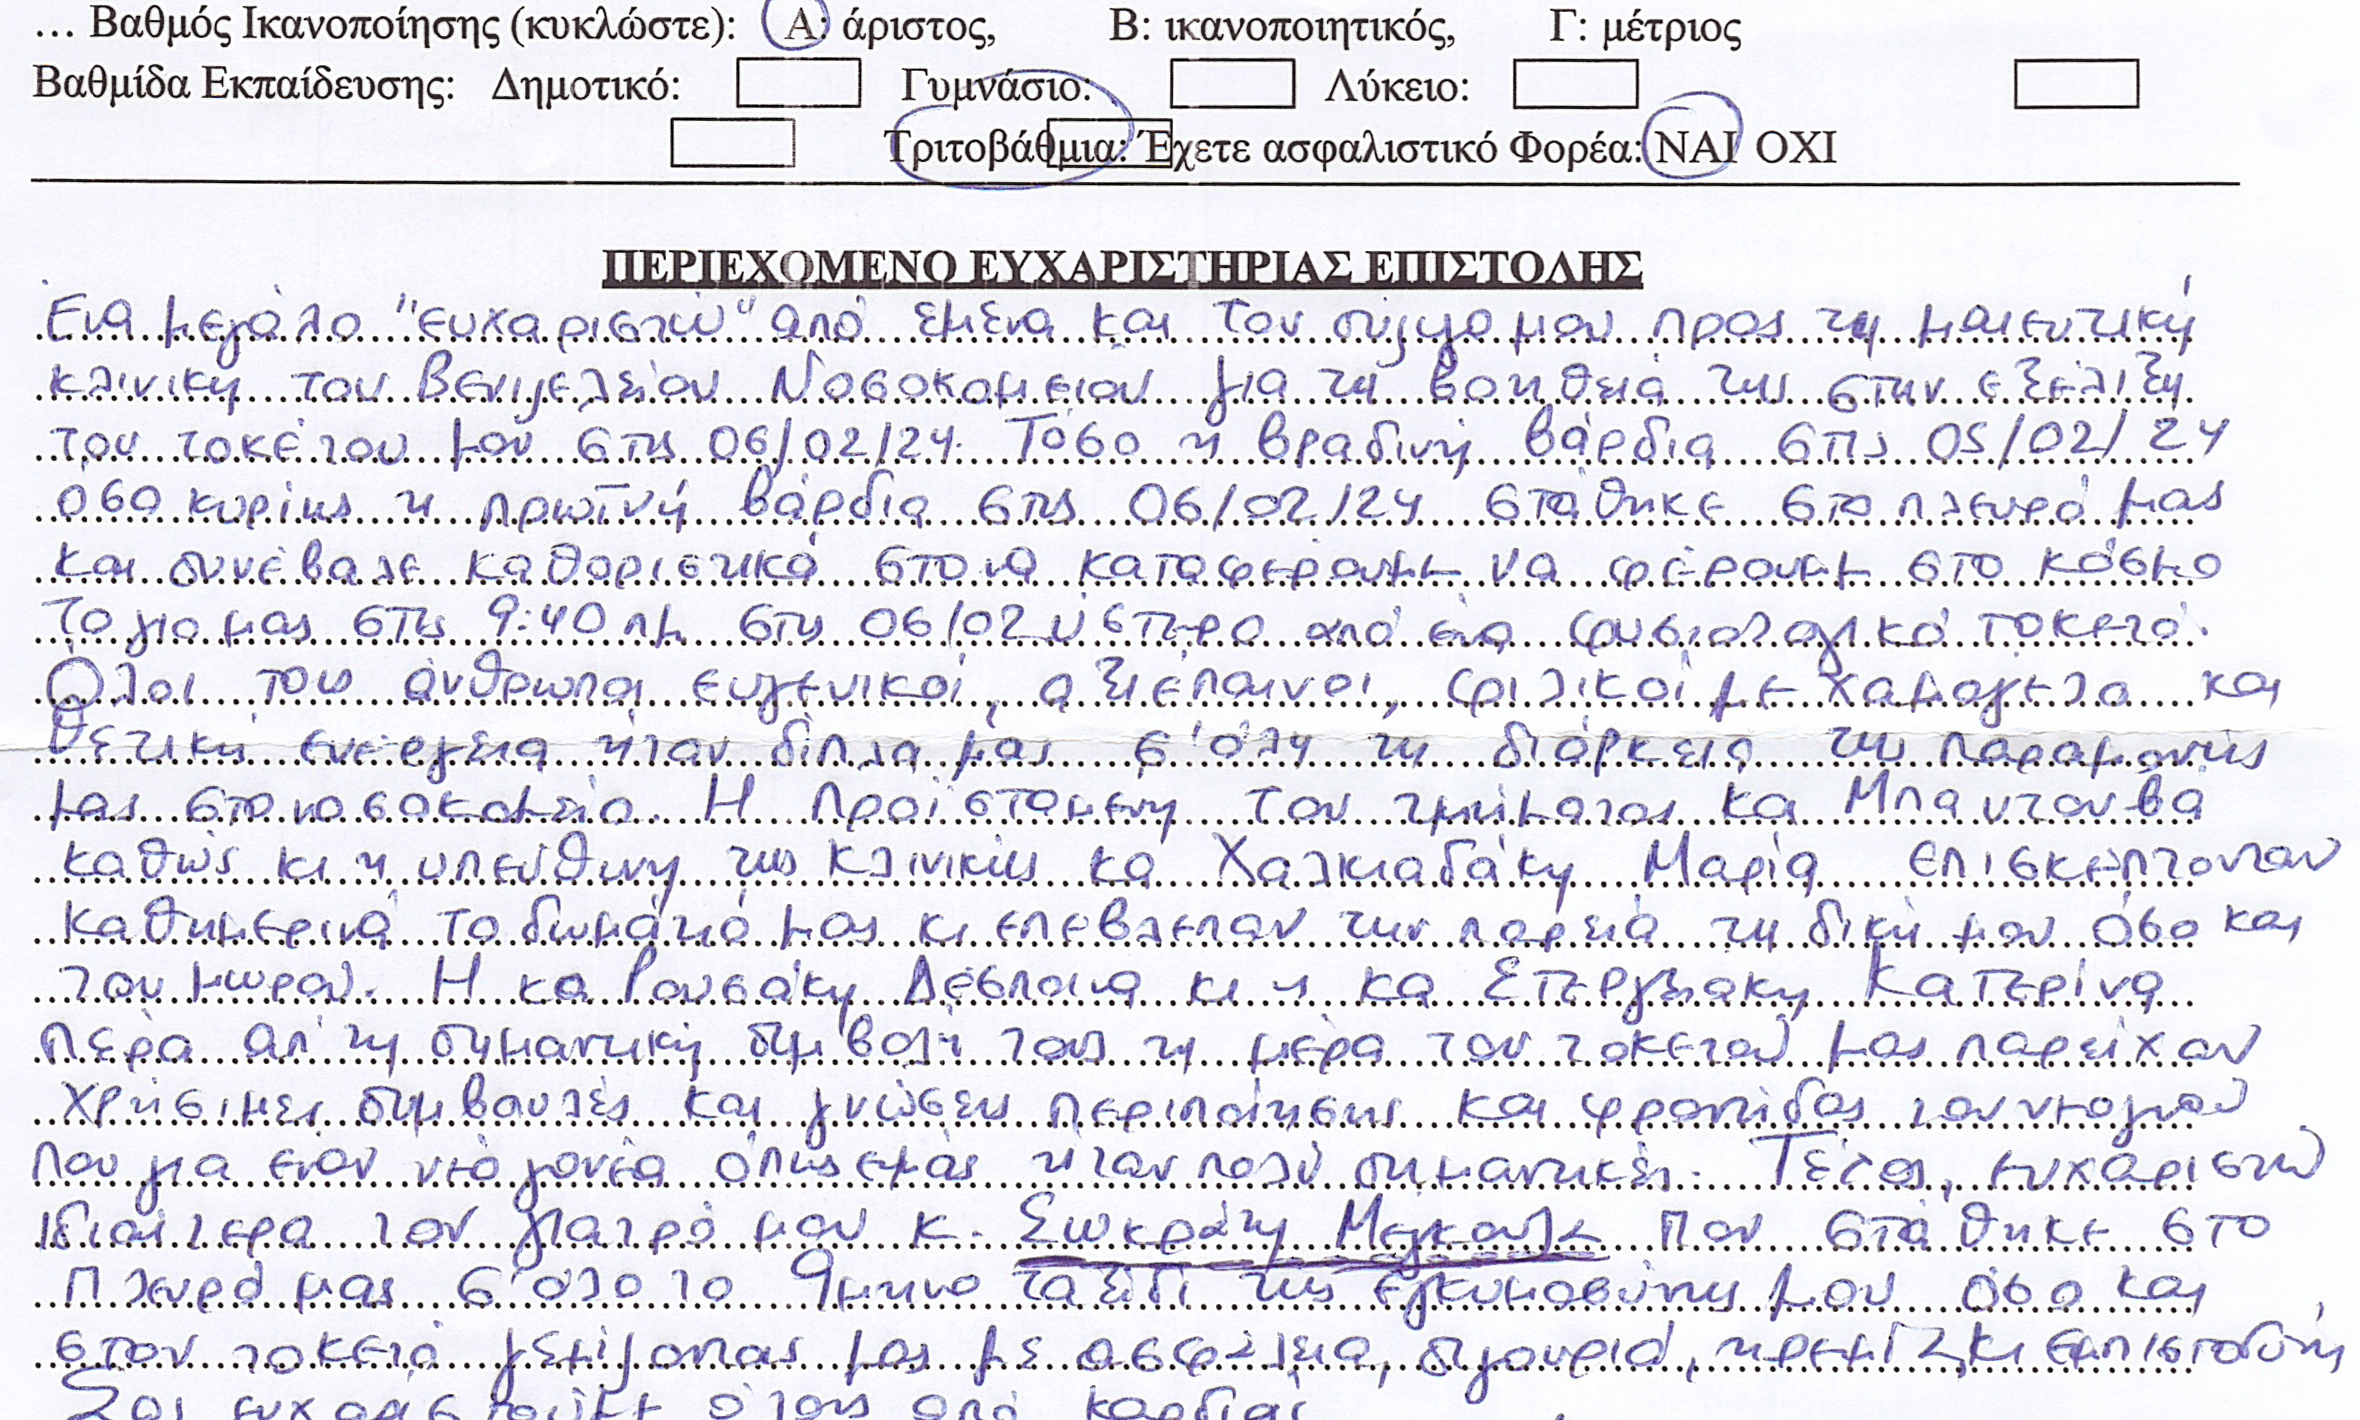 … Βαθμός Ικανοποίησης (κυκλώστε): Α: άριστος, Β: ικανοποιητικός, Γ: μέτριος
Βαθμίδα Εκπαίδευσης: Δημοτικό: Γυμνάσιο: Λύκειο:
Τριτοβάθμια: Έχετε ασφαλιστικό Φορέα: ΝΑΙ ΟΧΙ
ΠΕΡΙΕΧΟΜΕΝΟ ΕΥΧΑΡΙΣΤΗΡΙΑΣ ΕΠΙΣΤΟΛΗΣ
Ένα μεγάλο "ευχαριστώ" από εμένα και τον σύζυγο μου προς τη μαιευτική
κλινική του Βενιζελείου Νοσοκομείου για τη βοήθειά της στην εξέλιξη
του τοκετού μου στις 06/02/24. Τόσο η βραδινή βάρδια στις 05/02/24
όσο κυρίως η πρωϊνή βάρδια στις 06/02/24 στάθηκε στο πλευρό μας
και συνέβαλε καθοριστικά στο να καταφέρουμε να φέρουμε στο κόσμο
το γιο μας στις 9:40 πμ στις 06/02 ύστερα από ένα φυσιολογικό τοκετό.
Όλοι τους άνθρωποι ευγενικοί, αξιέπαινοι, φιλικοί με χαμόγελο και
θετική ενέργεια ήταν δίπλα μας σ'όλη τη διάρκεια της παραμονής
μας στο νοσοκομείο. Η προϊσταμένη του τμήματος κα Μπαντουβά
καθώς κι η υπεύθυνη της κλινικής κα Χαλκιαδάκη Μαρία επισκέπτονταν
καθημερινά το δωμάτιό μας κι επέβλεπαν την πορεία τη δική μου όσο και
του μωρού. Η κα Ρουσάκη Δέσποινα κι η κα Στεργιάκη Κατερίνα
πέρα απ'τη σημαντική συμβολή τους τη μέρα του τοκετού μας παρείχαν
χρήσιμες συμβουλές και γνώσεις περιποίησης και φροντίδας του νεογνού
που για έναν νέο γονέα όπως εμάς ήταν πολύ σημαντικές. Τέλος, ευχαριστώ
ιδιαίτερα τον γιατρό μου κ. Σωκράτη Μεγκούλε που στάθηκε στο
πλευρό μας σ'όλο το 9μηνο ταξίδι της εγκυμοσύνης μου όσο και
στον τοκετό γεμίζοντας μας με ασφάλεια, σιγουριά, ηρεμία κι εμπιστοσύνη
Σας ευχαριστούμε όλους από καρδιάς